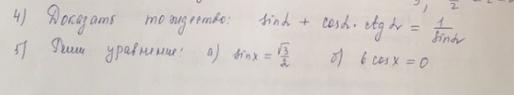 4) Доказать тождество: sin α + cos α · ctg α = 1/sin α
5) Реши уравнение: а) sin x = √3/2 б) 6 cos x = 0